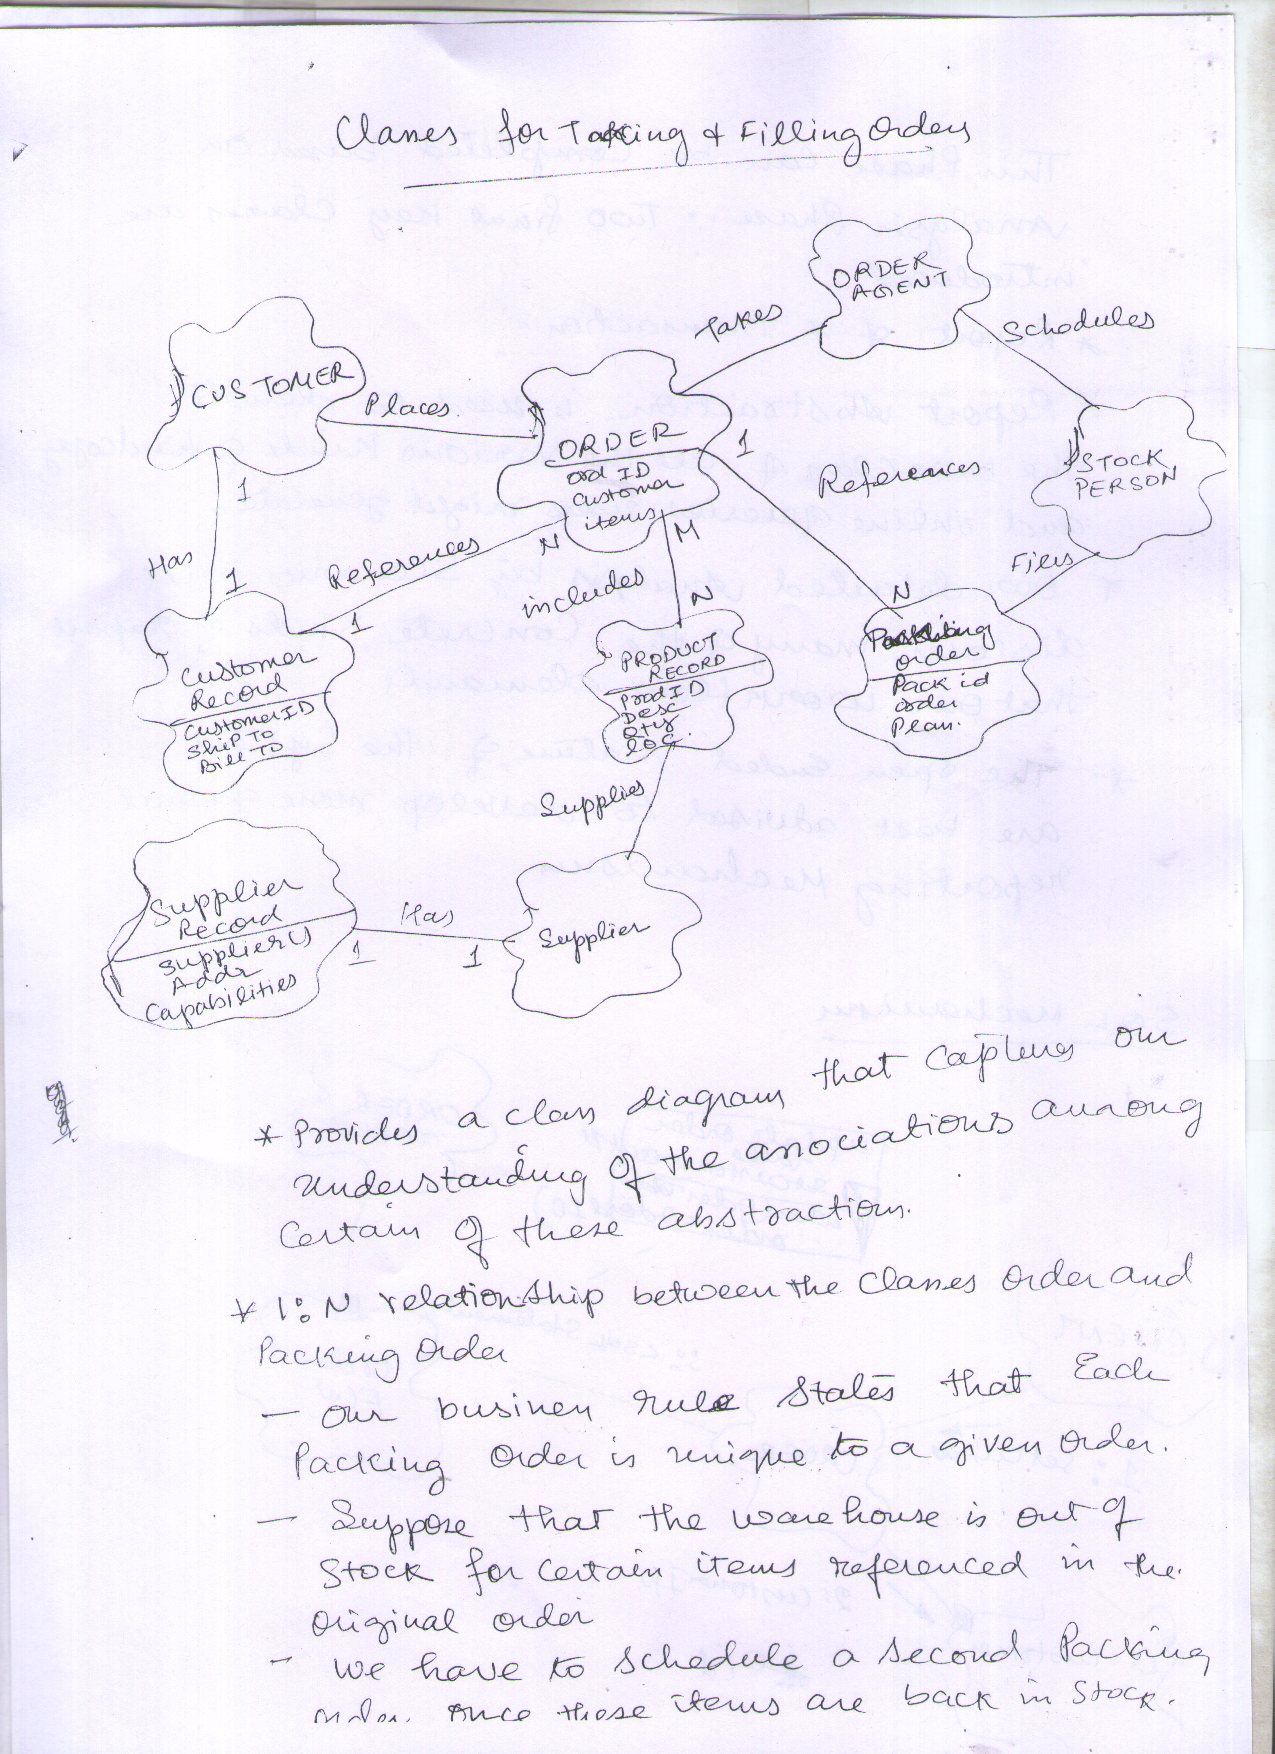 Classes for Taking & Filling Orders
ORDER
AGENT
Takes
Schedules
CUSTOMER
Places
ORDER
Ord ID
Customer
items
1
References
STOCK
PERSON
1
Has
1
References
1
N
includes
M
N
N
Files
Customer
Record
CustomerID
Ship To
Bill To
PRODUCT
RECORD
ProdID
Desc
Qty
loc.
Packing
order
Pack id
order
Plan.
Supplies
Supplier
Record
Supplier(s)
Addr
Capabilities
Has
1
1
Supplier
* Provides a class diagram that captures our
understanding of the associations among
Certain of these abstractions.
* 1:N relationship between the Classes Order and
Packing Order
- Our business rule States that Each
Packing Order is unique to a given order.
- Suppose that the warehouse is out of
Stock for Certain items referenced in the
original order
- We have to Schedule a Second Packing
order once these items are back in Stock.